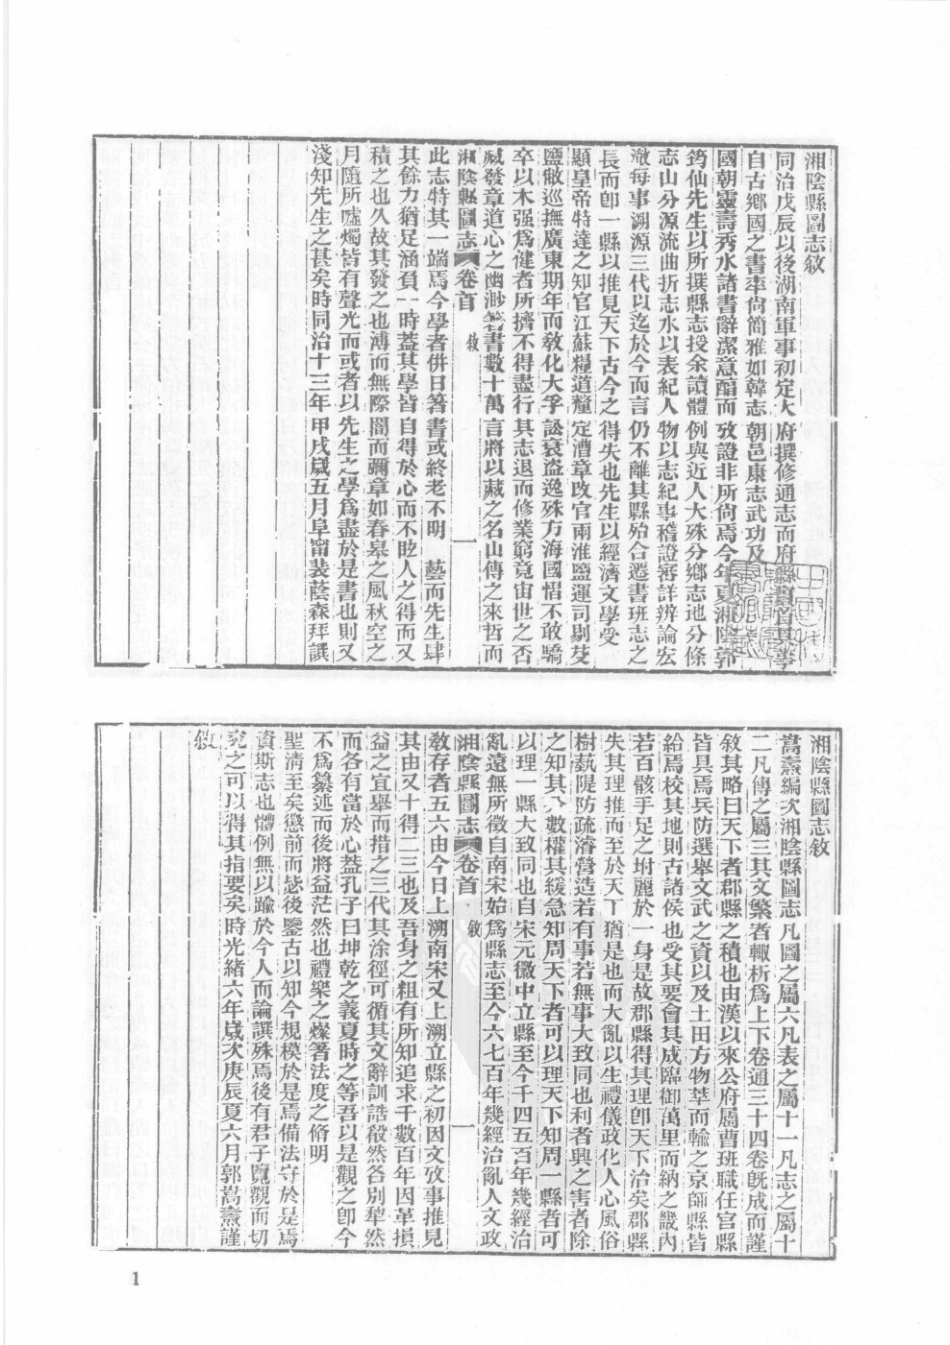 湘陰縣圖志敘
同治戊辰以後湖南軍事初定大府撰修通志而府縣
自古鄉國之書率尙簡雅如韓志朝邑康志武功及
國朝靈壽秀水諸書辭潔意醕而攷證非所尙焉今年夏湘陰郭
筠仙先生以所撰縣志授余讀體例與近人大殊分鄉志地分條
志山分源流曲折志水以表紀人物以志紀事稽證審詳辨論宏
澈每事溯源三代以迄於今而言仍不離其縣殆合遷書班志之
長而卽一縣以推見天下古今之得失也先生以經濟文學受
顯皇帝特達之知官江蘇糧道釐定漕章改官兩淮鹽運司剔芟
鹽敝巡撫廣東期年而敎化大孚訟衰盜逸殊方海國慴不敢驕
卒以木强爲健者所擠不得盡行其志退而修業窮竟宙世之否
臧發章道心之幽渺箸書數十萬言將以藏之名山傳之來哲而
湘陰縣圖志 卷首 敘 一
此志特其一端焉今學者併日箸書或終老不明一藝而先生肆
其餘力猶足涵負一時蓋其學皆自得於心而不眩人之得而又
積之也久故其發之也溥而無際闇而彌章如春皋之風秋空之
月隨所噓燭皆有聲光而或者以先生之學爲盡於是書也則又
淺知先生之甚矣時同治十三年甲戌歲五月阜甯裴蔭森拜譔
湘陰縣圖志敘
嵩燾編次湘陰縣圖志凡圖之屬六凡表之屬十一凡志之屬十
二凡傳之屬三其文繁者輒析爲上下卷通三十四卷旣成而謹
敘其略曰天下者郡縣之積也由漢以來公府屬曹班職任官縣
皆具焉兵防選舉文武之資以及土田方物萃而輸之京師縣皆
給焉校其地則古諸侯也受其要會其成臨御萬里而納之畿內
若百骸手足之坿麗於一身是故郡縣得其理卽天下治矣郡縣
失其理推而至於天下猶是也而大亂以生禮儀政化人心風俗
樹蓺隄防疏濬營造若有事若無事大致同也利者興之害者除
之知其人數權其緩急知周天下者可以理天下知周一縣者可
以理一縣大致同也自宋元徽中立縣至今千四五百年幾經治
亂遠無所徵自南宋始爲縣志至今六七百年幾經治亂人文政
湘陰縣圖志 卷首 敘 一
敎存者五六由今日上溯南宋又上溯立縣之初因文攷事推見
其由又十得二三也及吾身之粗有所知追求千數百年因革損
益之宜舉而措之三代其涂徑可循其文辭訓誥殽然各別犂然
而各有當於心蓋孔子曰坤乾之義夏時之等吾以是觀之卽今
不爲纂述而後將益茫然也禮樂之燦箸法度之脩明
聖淸至矣懲前而毖後鑒古以知今規模於是焉備法守於是焉
資斯志也體例無以踰於今人而論譔殊焉後有君子覽觀而切
究之可以得其指要矣時光緒六年歲次庚辰夏六月郭嵩燾謹
敘
1